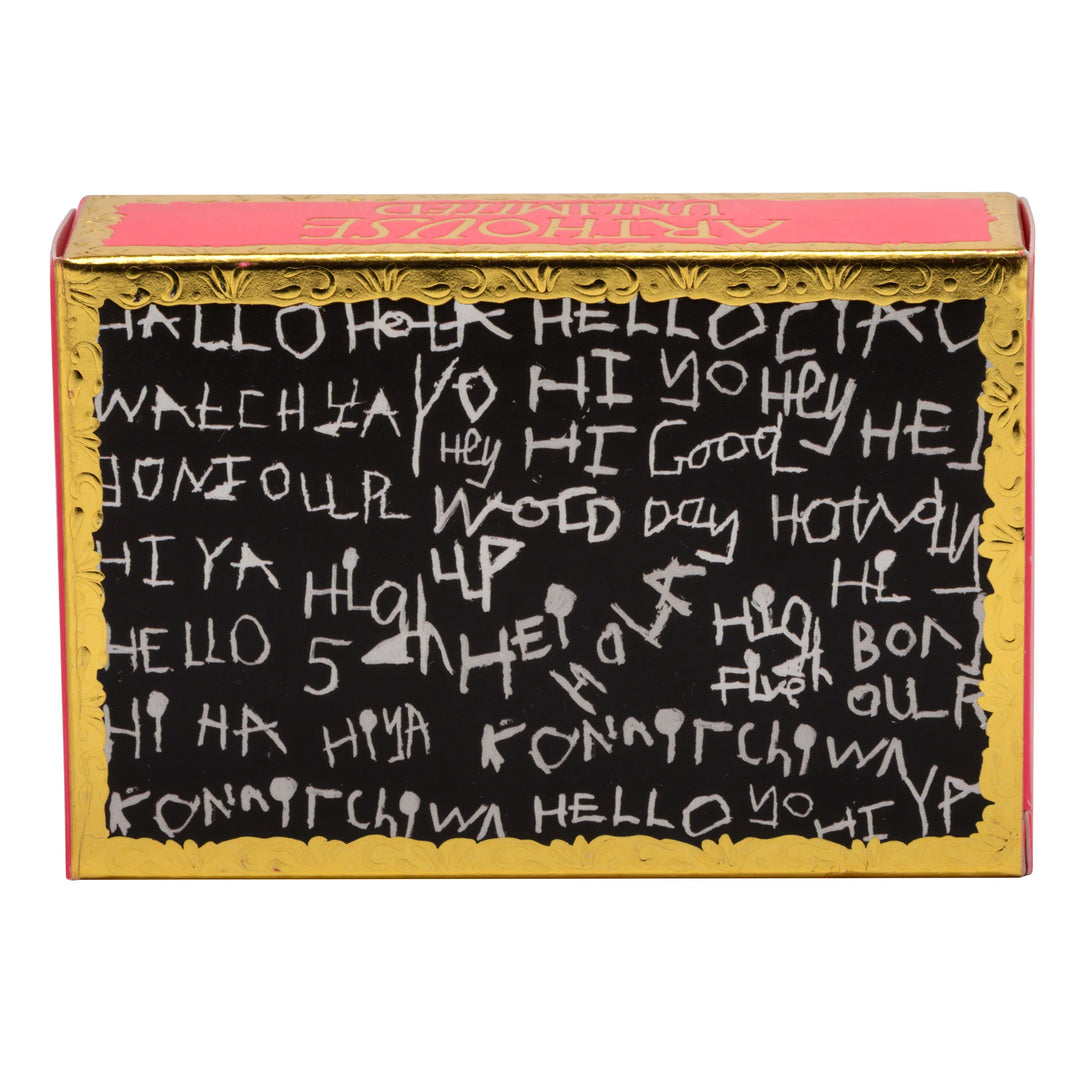 ARTHOUSE
UNLIMITED
HALLO HOLA HELLO CIAO
WATCH YA YO HI yo Hey HEI
Hey HI Good
BONJOUR WORLD Day HOWdy
HI YA High UP HI
HELLO 5 Hei HOLA High Five BONJ
OUR
Hi HA HiYA KONNiTChiWA
KONNiTChiWA HELLO yo HI YA